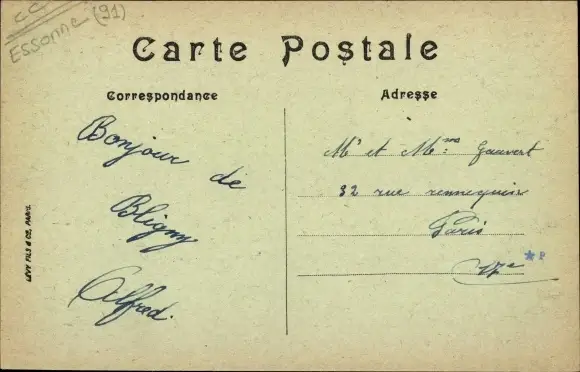 CC
Essonne (91)
Carte Postale
Correspondance
Adresse
Bonjour
de
Bligny
Alfred.
Mr et Mmes Gauvert
32 rue rennequin
Paris
17e
*P
LÉVY FILS & CO, PARIS.